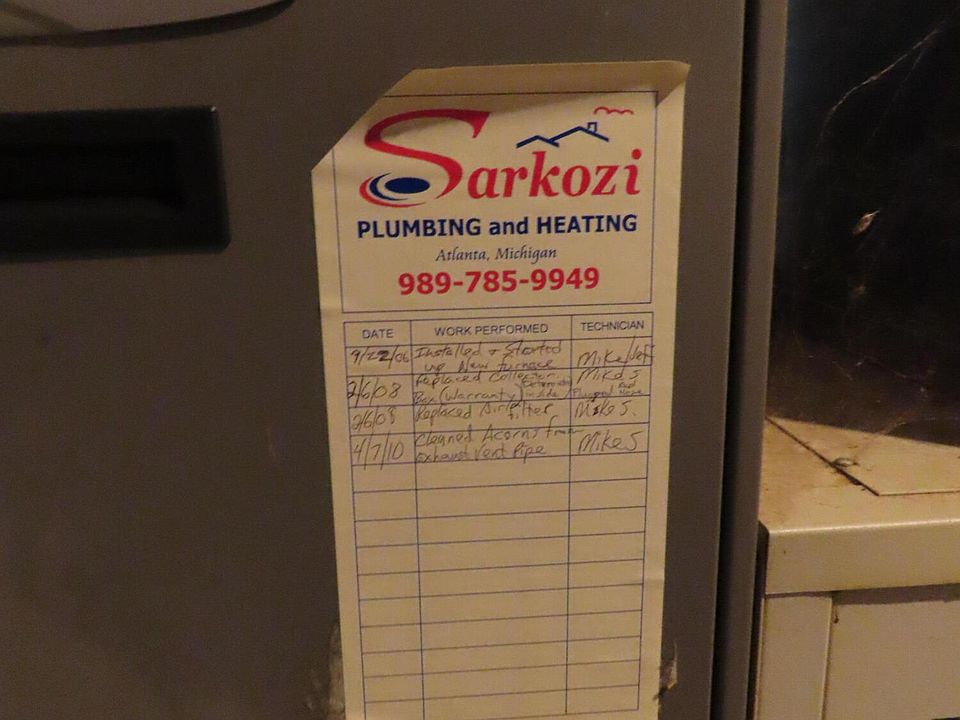 Sarkozi
PLUMBING and HEATING
Atlanta, Michigan
989-785-9949
DATE WORK PERFORMED TECHNICIAN
9/22/06 Installed + Started Mike/Jeff
up New furnace
2/6/08 Replaced Collector Mike S
Box (Warranty) inside Plugged
2/6/08 Replaced Air filter Mike S.
4/7/10 Cleaned Acorns from Mike S
Exhaust Vent Pipe